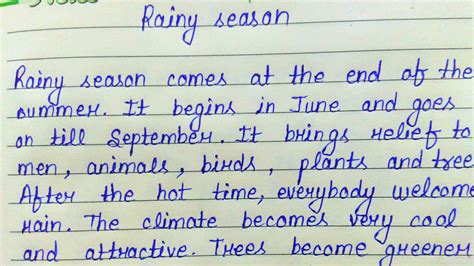 Rainy season
Rainy season comes at the end of the
summer. It begins in June and goes
on till September. It brings relief to
men, animals, birds, plants and tree
After the hot time, everybody welcome
rain. The climate becomes very cool
and attractive. Trees become greener